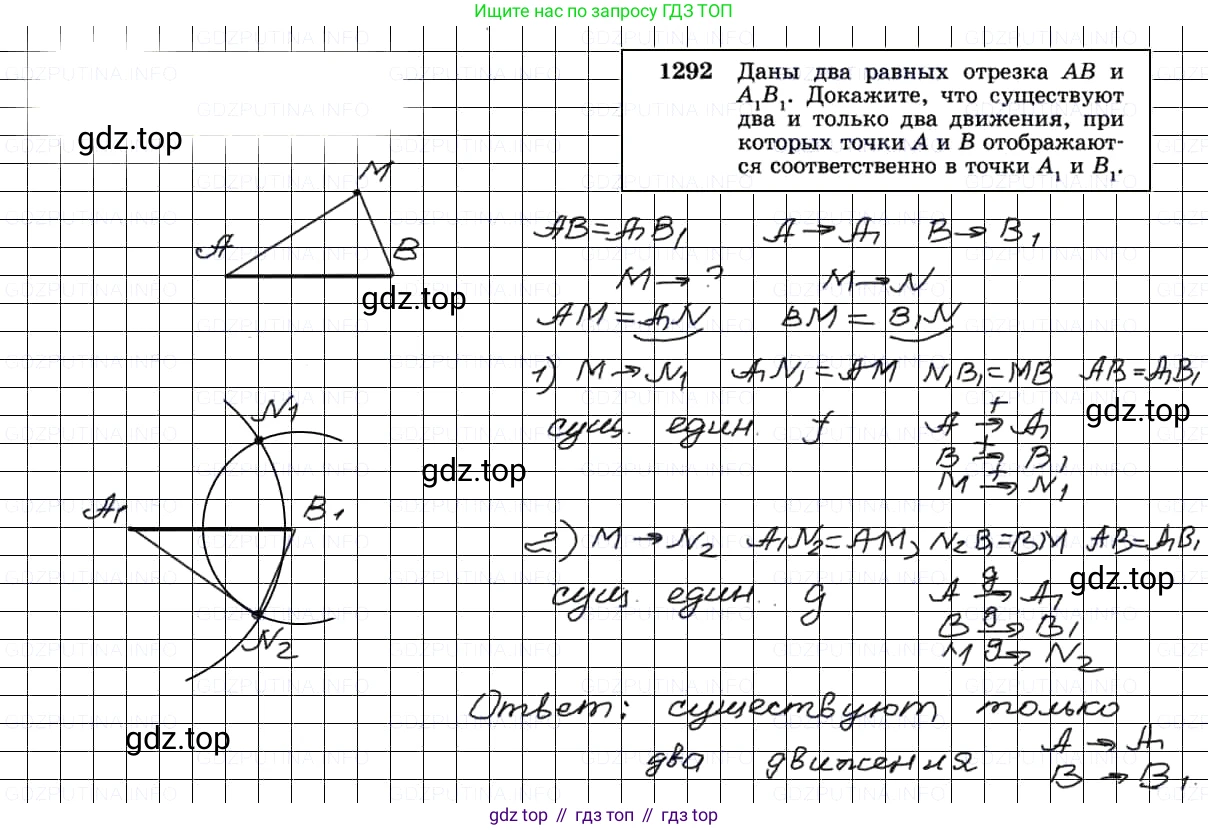 Ищите нас по запросу ГДЗ ТОП
1292 Даны два равных отрезка AB и
A₁B₁. Докажите, что существуют
два и только два движения, при
которых точки A и B отображают-
ся соответственно в точки A₁ и B₁.
gdz.top
M
A
B
gdz.top
AB = A₁B₁ A → A₁ B → B₁
M → ? M → N
AM = A₁N BM = B₁N
1) M → N₁ A₁N₁ = AM N₁B₁ = MB AB = A₁B₁
gdz.top
сущ. един. f A →f A₁
B →f B₁
M →f N₁
N₁
gdz.top
A₁
B₁
N₂
2) M → N₂ A₁N₂ = AM, N₂B₁ = BM AB = A₁B₁
gdz.top
сущ. един. g A →g A₁
B →g B₁
M →g N₂
Ответ: существуют только
два движения A → A₁
B → B₁.
gdz.top
gdz top // гдз топ // gdz top
GDZPUTINA.INFO